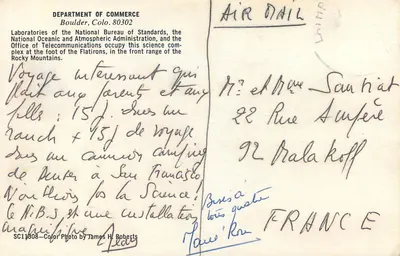 DEPARTMENT OF COMMERCE
Boulder, Colo. 80302
Laboratories of the National Bureau of Standards, the
National Oceanic and Atmospheric Administration, and the
Office of Telecommunications occupy this science com-
plex at the foot of the Flatirons, in the front range of the
Rocky Mountains.
Voyage intéressant qui
plait aux parents et aux
filles : 15 j. dans un
ranch + 15 j de voyage
dans un camion camping
de Denver à San Francisco
N'oublions pas la Science!
le N.B.S. est une installation
magnifique. Jean
SC11808—Color Photo by James H. Roberts
AIR MAIL
Mr et Mme
22 Rue Ampère
92 Malakoff
FRANCE
Bises à
tous quatre